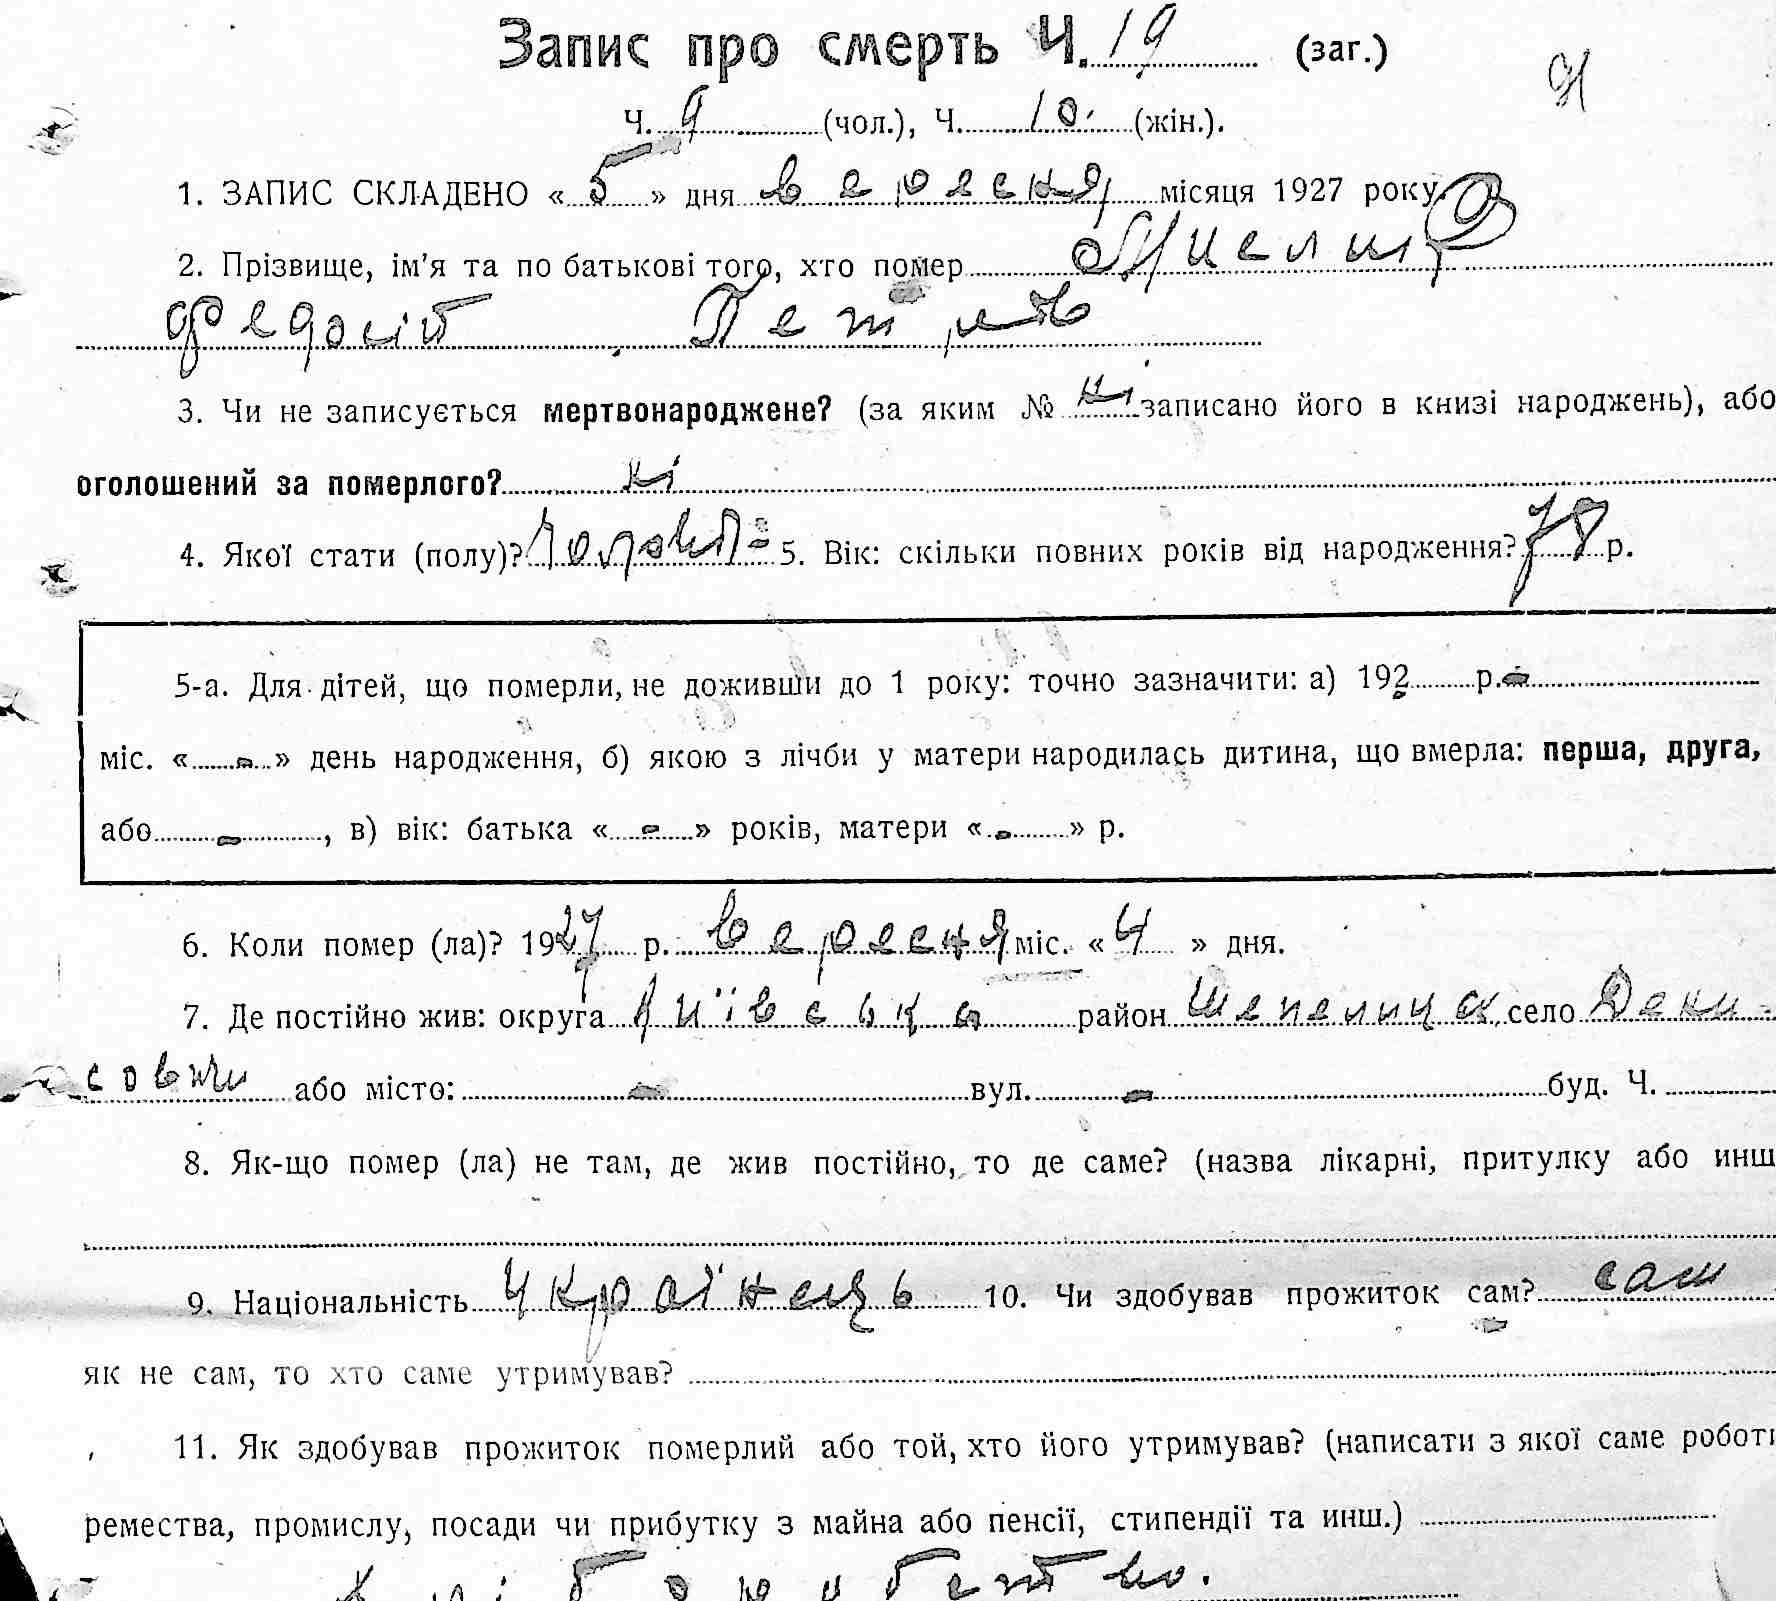 Запис про смерть Ч. 19 (заг.)
91
Ч. 9 (чол.), Ч. 10. (жін.).
1. ЗАПИС СКЛАДЕНО « 5 » дня вересня місяця 1927 року
2. Прізвище, ім'я та по батькові того, хто помер
Федосій Петров
3. Чи не записується мертвонароджене? (за яким № ні записано його в книзі народжень), або
оголошений за померлого? ні
4. Якої стати (полу)? 5. Вік: скільки повних років від народження? 78 р.
5-а. Для дітей, що померли, не доживши до 1 року: точно зазначити: а) 192 р. -
міс. « - » день народження, б) якою з лічби у матери народилась дитина, що вмерла: перша, друга,
або - , в) вік: батька « - » років, матери « - » р.
6. Коли помер (ла)? 1927 р. вересня міс. « 4 » дня.
7. Де постійно жив: округа Київська район Шепелица село Дени-
совичи або місто: - вул. - буд. Ч.
8. Як-що помер (ла) не там, де жив постійно, то де саме? (назва лікарні, притулку або инш
9. Національність Українець 10. Чи здобував прожиток сам? сам
як не сам, то хто саме утримував?
11. Як здобував прожиток померлий або той, хто його утримував? (написати з якої саме роботи
ремества, промислу, посади чи прибутку з майна або пенсії, стипендії та инш.)
хліборобство.